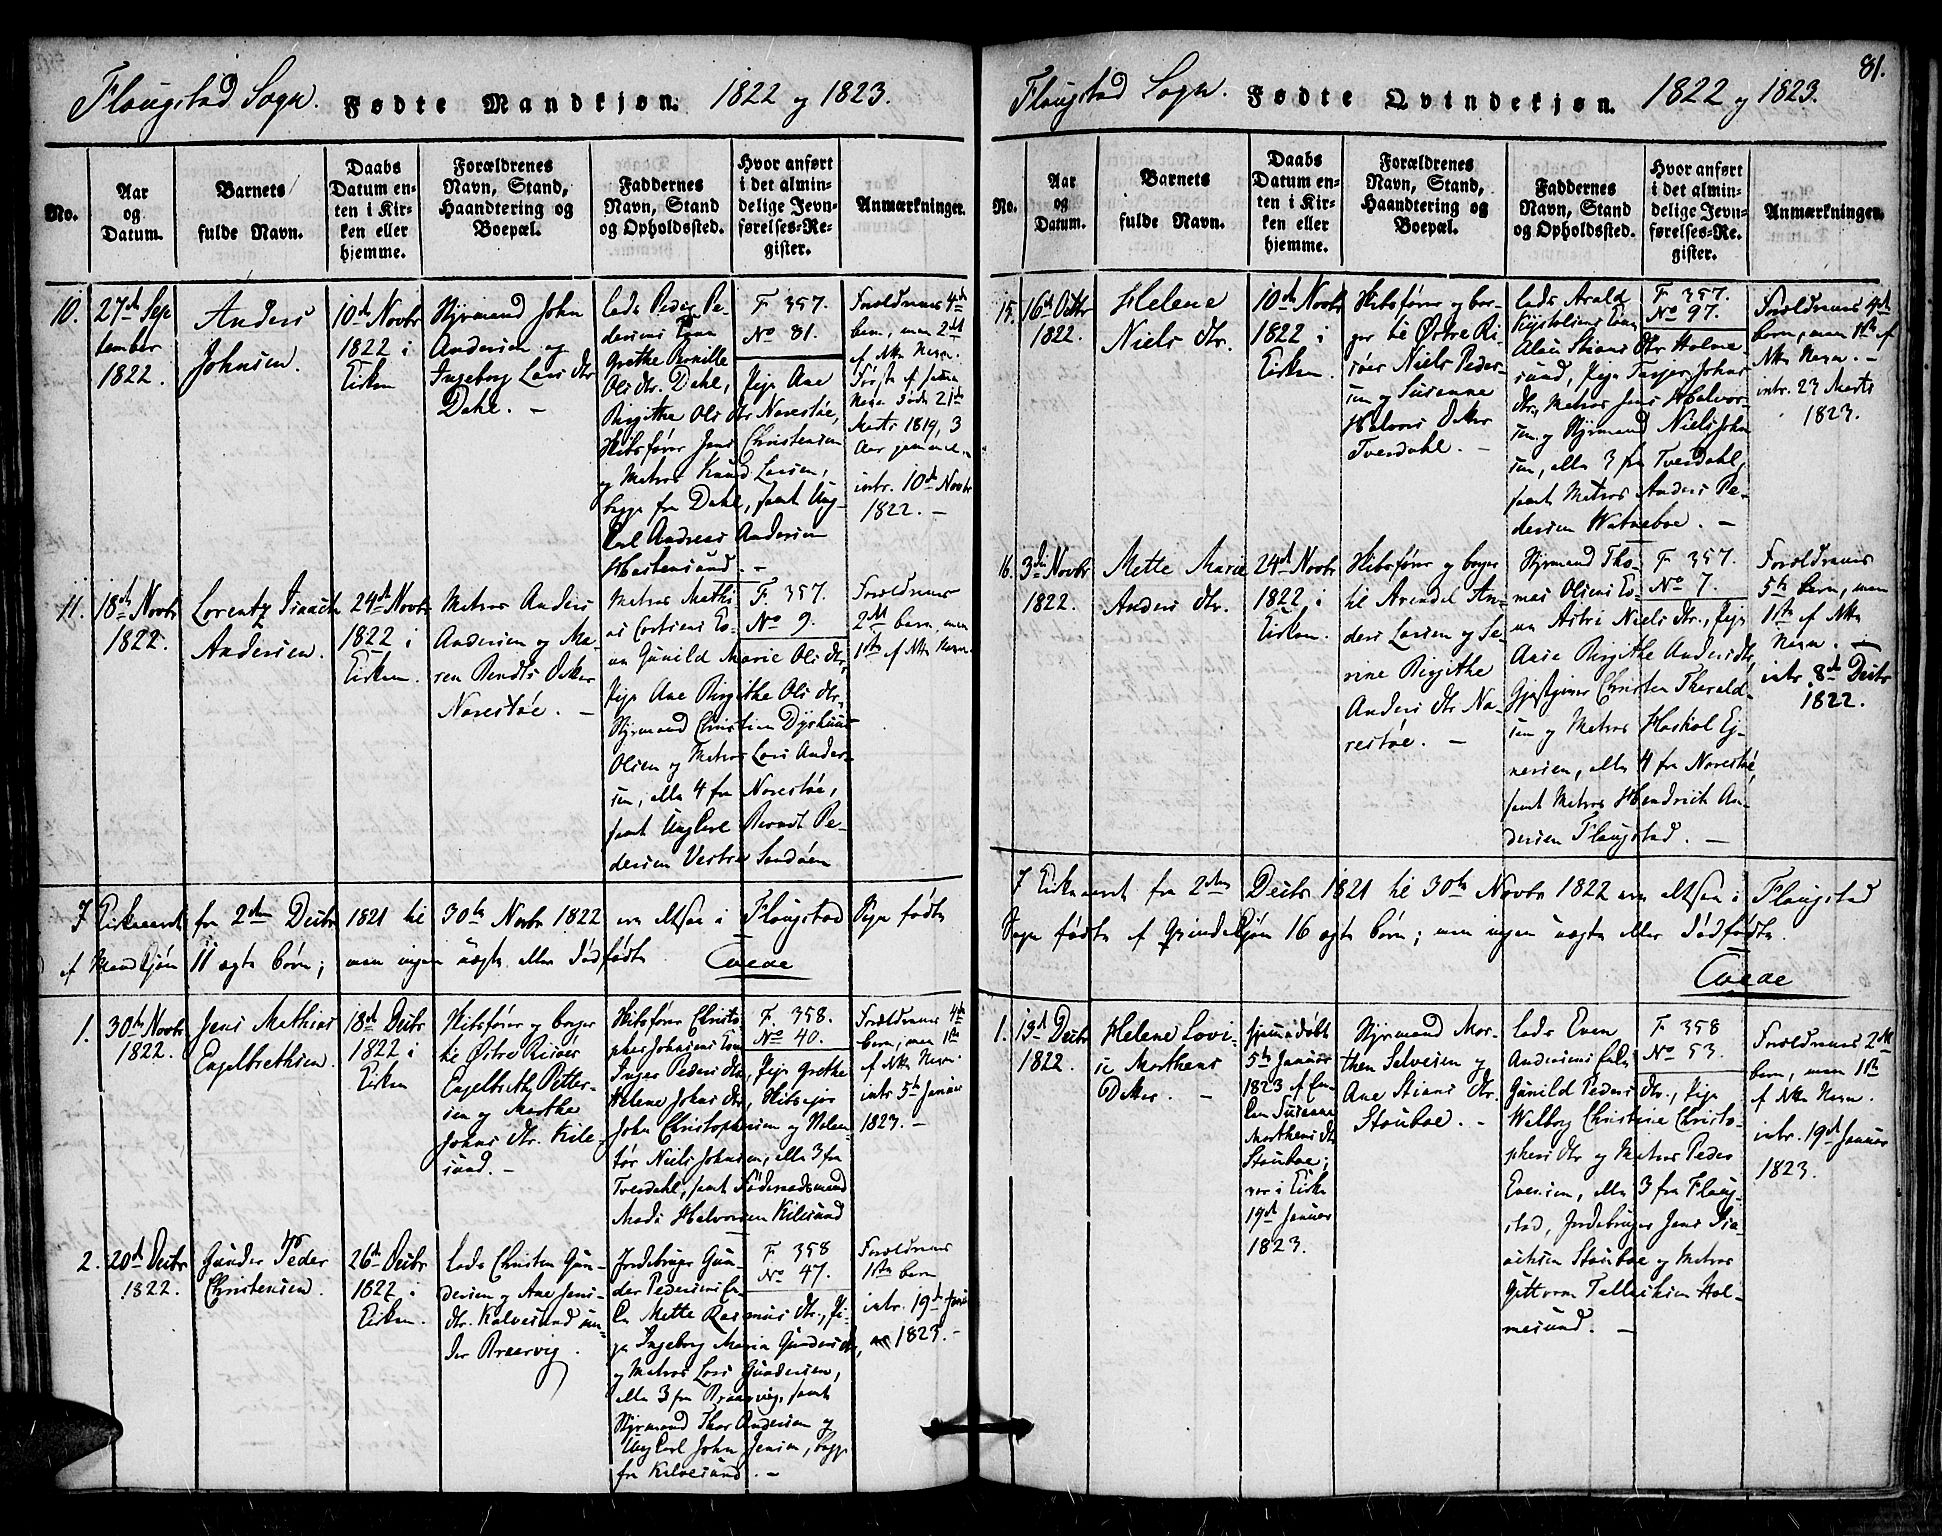 Flaugstad Sogn. Fødte Mandkjøn. 1822 og 1823.
No.
Aar
og
Datum.
Barnets
fulde Navn.
Daabs
Datum en-
ten i Kir-
ken eller
hjemme.
Forældrenes
Navn, Stand,
Haandtering og
Boepæl.
Faddernes
Navn, Stand
og Opholdssted.
Hvor anført
i det almin-
delige Jevn-
førelses-Re-
gister.
Anmærkninger.
10.
27de Sep
tember
1822.
Anders
Johnsen.
10de Novbr
1822 i
Kirken
Styrmand John
Andersen og
Ingeborg Lars dtr
Dahl. —
Lods Peder Pe-
dersens Kone
Grethe Pernille
Ols dtr. Dahl, Pige Ane
Birgitha Ols dtr Narestøe,
Skibsfører Jens Christensen
og Matros Knud Larsen,
begge fra Dahl, samt Ung-
Karl Andreas Andersen
Hastensund. —
F 357.
No 81.
Forældrenes 4de
barn, men 2det
af Navn.
Første af samme
Navn døde 21de
Marts 1819, 3
Aar gammel.
intr. 10de Novbr
1822. —
11.
18de Novbr
1822.
Lorentz Isaach
Andersen.
24de Novbr
1822 i
Kirken.
Matros Anders
Andersen og Ma-
ren Bendts Datter
Narestøe. —
Matros Mathi-
as Ko-
ne Gunild Marie Ols dtr,
Pige Ane Birgithe Ols dtr,
Styrmand Christen
Olsen og Matros Lars Ander-
sen, alle 4 fra Narestøe,
samt Ung Karl Berndt Pe-
dersen Vestre Sandøen
F. 357.
No 9.
Forældrenes
2det barn, men
1ste af Navn.
I Kirkeaaret fra 2den Decbr 1821 til 30te Novbr 1822 ere altsaa i Flaugstad Sogn fødte
af Mandkjøn 11 ægte børn; men ingen uægte eller dødfødte
1.
30te Novbr
1822.
Jens Mathias
Engelbrethsen.
18de Decbr
1822 i
Kirken
Skibsfører og borger
til Østre Riisøer
Engelbreth Petter-
sen og Marthe
Johns dtr. Kile-
sund. —
Skibsfører Christo-
pher Johnsens Kone
Inger Peders dtr, Pige Grethe
Helene Johns dtr, Skibseier
John Christophersen og
Niels Johnsen, alle 3 fra
Tverdahl, samt Føderaadsmand
Mads Halvorsen Kilesund
F. 358.
No 40.
Forældrenes 4de
barn, men 1ste
af Navn.
intr 5te Januar
1823. —
2.
20de Decbr
1822.
Gunder Peder
Christensen.
26de Decbr
1822 i
Kirken.
Lods Christen Gun-
dersen og Ane Jens-
dtr. Kalvesund un-
der Braarvig.
Jordbruger Gun-
der Pedersens
Mette Rasmus dtr, Pi-
ge Ingeborg Maria Gunders dtr,
og Matros Lars Gundersen,
alle 3 fra Braarvig, samt
Styrmand Thor Andersen og
Ung Karl John Jensen, begge
fra Kalvesund. —
F 358
No 47.
Forældrenes
1ste barn
intr. 19de Janu-
ar 1823. —
81.
Flaugstad Sogn. Fødte Qvindekjøn. 1822 og 1823.
No.
Aar
og
Datum.
Barnets
fulde Navn.
Daabs
Datum en-
ten i Kir-
ken eller
hjemme.
Forældrenes
Navn, Stand,
Haandtering og
Boepæl.
Faddernes
Navn, Stand
og Opholdssted.
Hvor anført
i det almin-
delige Jevn-
førelses-Re-
gister.
Anmærkninger.
15.
16de Octbr
1822.
Helene
Niels dtr.
10de Novbr
1822 i
Kirken.
Skibsfører og bor-
ger til Østre Ri-
isøer Niels Peder-
sen og Susanna
Halvors Datter
Tverdahl. —
Lods
Kone
Stians dtr Holme-
sund, Pige Johns
dtr, Matros Jens Halvor-
sen og Styrmand Niels John
sen, alle 3 fra Tverdahl,
samt Matros Anders Pe-
dersen Watneboe. —
F 357.
No 97.
Forældrenes 4de
barn, men 1ste af
Navn. —
intr. 23 Marts
1823.
16.
3die Novbr
1822.
Mette Marie
Anders dtr.
24de Novbr
1822 i
Kirken.
Skibsfører og borger
til Arendal An-
ders Larsen og Se-
rine Birgithe
Anders dtr Na-
restøe. —
Styrmand Tho-
mas Olsens Ko-
ne Astri Niels dtr, Pige
Anne Birgithe Anders dtr,
Gjestgiver Christen Therald-
sen og Matros Haskol Ej-
nersen, alle 4 fra Narestøe,
samt Matros Hendrich An-
dersen Flaugstad. —
F 357.
No 7.
Forældrenes
5te barn, men
1ste af
Navn. —
intr. 8de Decbr
1822.
I Kirkeaaret fra 2den Decbr 1821 til 30te Novbr 1822 ere altsaa i Flaugstad
Sogn fødte af Qvindekjøn 16 ægte børn; men ingen uægte eller dødfødte.
1.
13de Decbr
1822.
Helene Lovi-
se Morthens
Datter. —
hjemmedøbt
5te Januar
1823 af
Susanna
Morthens dtr
Stouboe;
var i Kirke
19de Januar
1823.
Styrmand Mor-
then Salvesen og
Ane Stians dtr.
Stouboe. —
Lods Even
Andersens
Gunild Peders dtr, Pige
Walborg Christine Christo-
phers dtr og Matros Peder
Evensen, alle 3 fra Flaug-
stad, Jordbruger Jens Isa-
achsen Stouboe og Matros
Guttorm Tallachsen Hol-
mesund. —
F 358
No 53.
Forældrenes 2det
barn, men 1ste
af Navn.
intr. 19de Januar
1823.